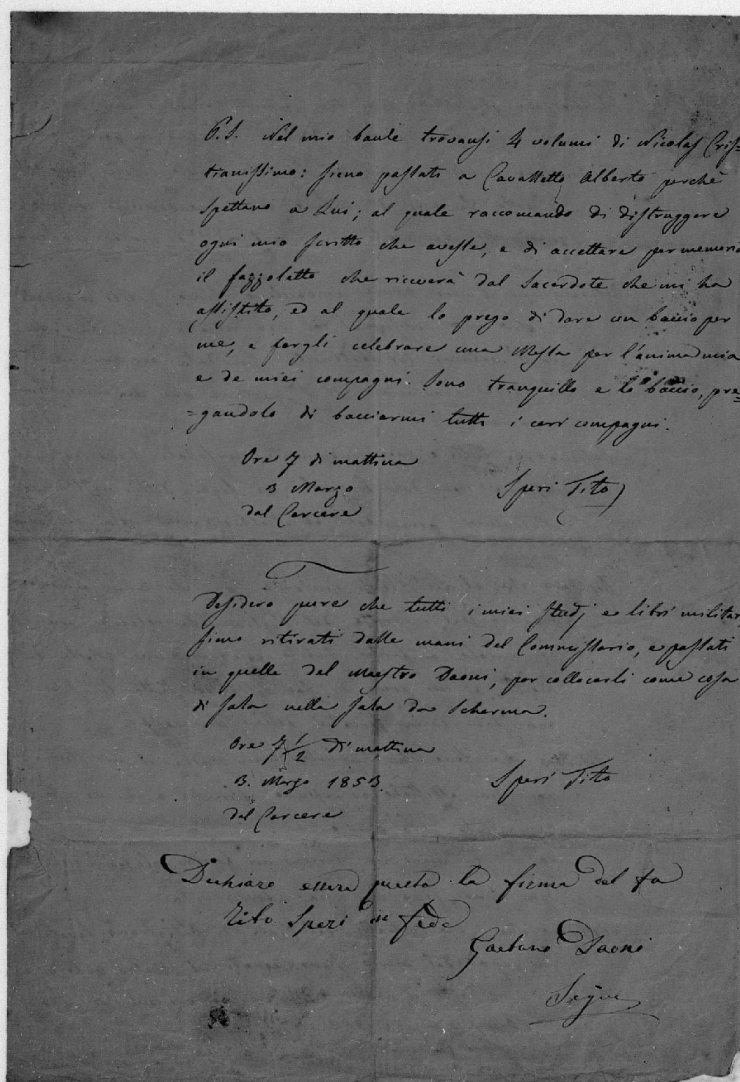 P.S. Nel mio baule trovansi 4 volumi di Nicolas Cris=
tianissimo: sieno passati a Cavalletto Alberto perchè
spettano a Lui; al quale raccomando di distruggere
ogni mio scritto che avesse, e di accettare per memoria
il fazzoletto che riceverà dal Sacerdote che mi ha
assistito, ed al quale lo prego di dare un baccio per
me, e fargli celebrare una Messa per l'anima mia
e de miei compagni. Sono tranquillo e lo baccio, pre=
=gandolo di bacciarmi tutti i cari compagni.
Ore 7 di mattina
3 Marzo
dal Carcere
Speri Tito
Desidero pure che tutti i miei studj e libri militari
sieno ritirati dalle mani del Commissario, e passati
in quelle del Maestro Daoni, per collocarli come cosa
di sala nella sala da Scherma.
Ore 7 1/2 di mattina
3. Marzo 1853.
dal Carcere
Speri Tito
Dichiaro essere questa la firma del fu
Tito Speri in fede
Gaetano Daoni
Segue